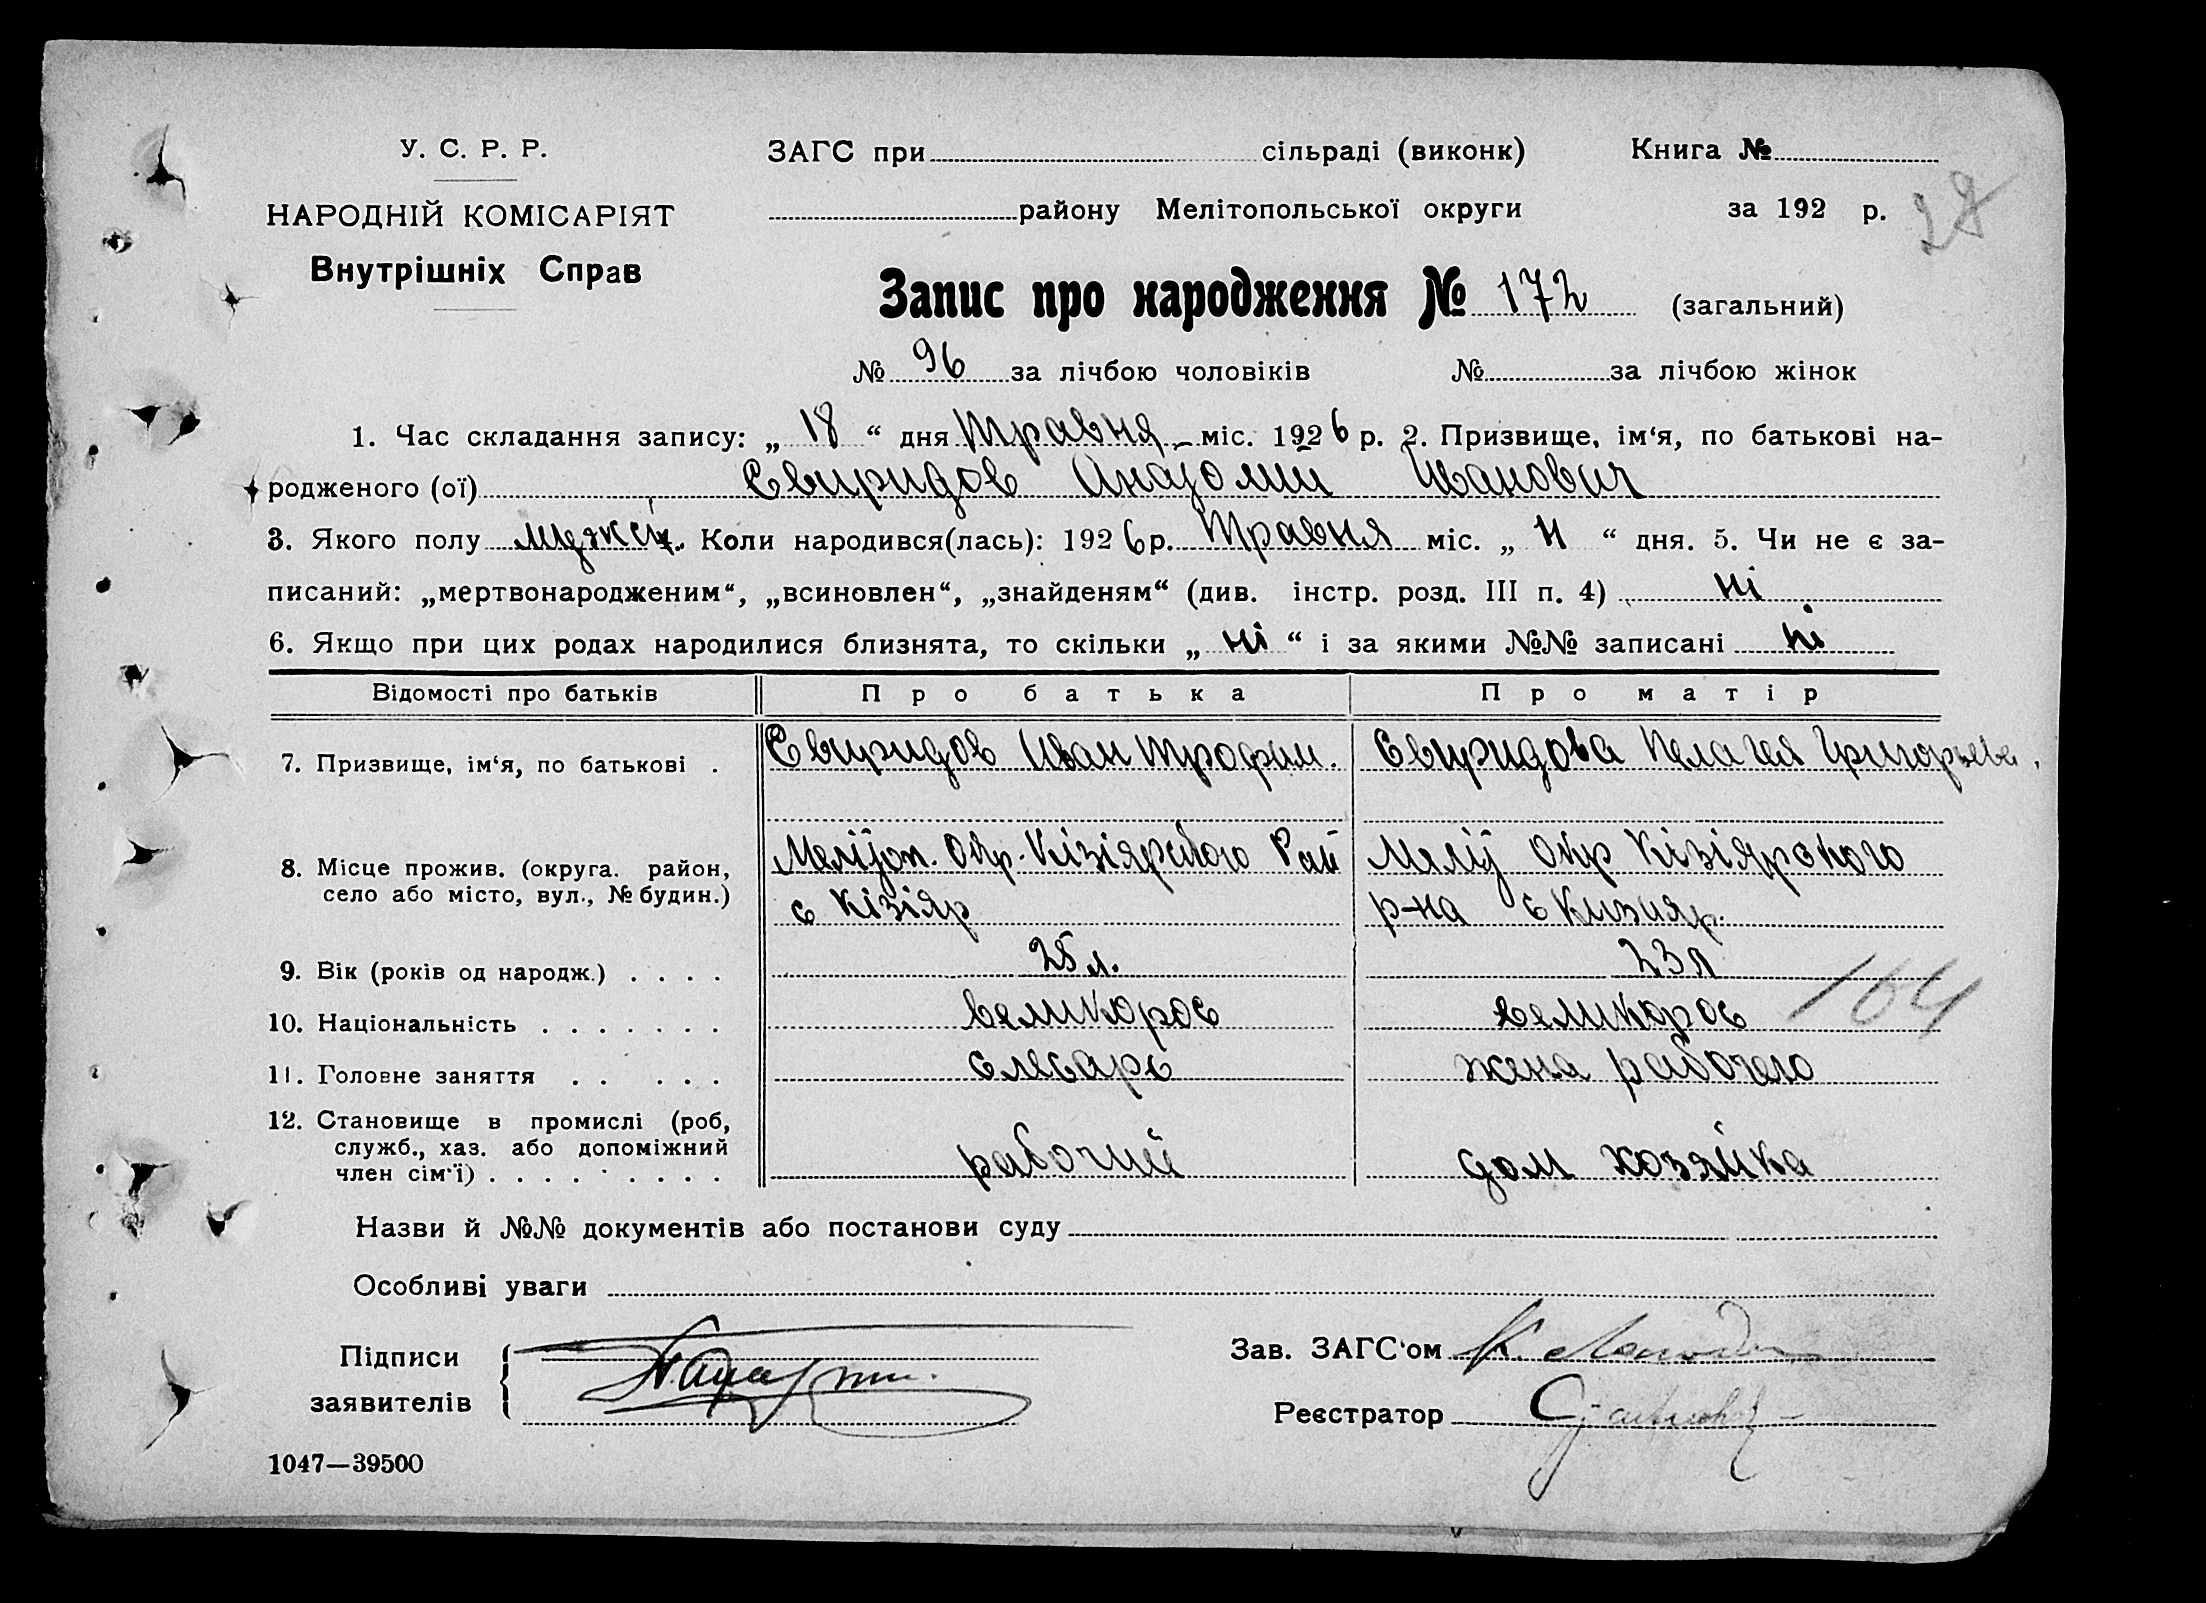 У. С. Р. Р.
НАРОДНІЙ КОМІСАРІЯТ
Внутрішніх Справ
ЗАГС при сільраді (виконк) Книга №
району Мелітопольської округи за 192 р.
28
Запис про народження № 172 (загальний)
№ 96 за лічбою чоловіків № за лічбою жінок
1. Час складання запису: „ 18 “ дня Травня міс. 1926 р. 2. Призвище, ім‘я, по батькові на-
родженого (ої) Свиридов Анатолий Иванович
3. Якого полу мужск. 4. Коли народився(лась): 1926 р. Травня міс. „ 11 “ дня. 5. Чи не є за-
писаний: „мертвонародженим“, „всиновлен“, „знайденям“ (див. інстр. розд. III п. 4) ні
6. Якщо при цих родах народилися близнята, то скільки „ ні “ і за якими №№ записані ні
Відомості про батьків Про батька Про матір
7. Призвище, ім‘я, по батькові . Свиридов Иван Трофим. Свиридова Пелагея Григорьев.
8. Місце прожив. (округа. район, Меліт. Окр. Кізіярского Рай Меліт Окр Кізіярского
село або місто, вул., № будин.) с Кізіяр р-на с Кизияр.
9. Вік (років од народж.) . . . . 25 л. 23 л
10. Національність . . . . . . . великорос великорос
104
11. Головне заняття . . . . . слесарь жена рабочего
12. Становище в промислі (роб,
служб., хаз. або допоміжний
член сім‘ї) . . . . . . . . рабочий дом хозяйка
Назви й №№ документів або постанови суду
Особливі уваги
Підписи
заявителів
Зав. ЗАГС‘ом
Реєстратор
1047—39500